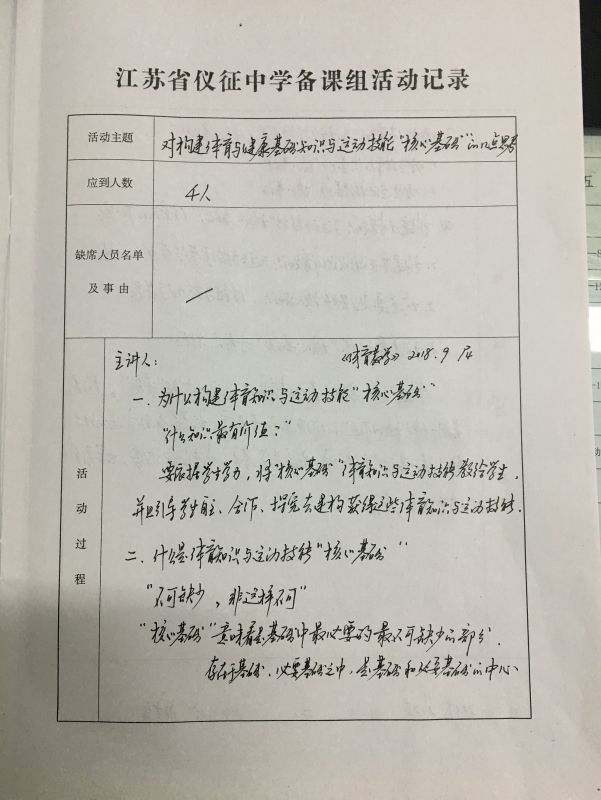 江苏省仪征中学备课组活动记录
活动主题 对构建体育与健康基础知识与运动技能"核心基础"的几点思考
应到人数 4人
缺席人员名单
及事由 /
活动过程
主讲人: 《体育教学》2018.9
一、为什么构建体育知识与运动技能"核心基础"
"什么知识最有价值?"
要依据学生学力,将"核心基础"体育知识与运动技能教给学生,
并且引导学生自主、合作、探究去建构获得这些体育知识与运动技能.
二、什么是体育知识与运动技能"核心基础"
"不可缺少,非这样不可"
"核心基础"意味着是基础中最必要的最不可缺少的部分.
存在于基础、必要基础之中,是基础和必要基础的中心、